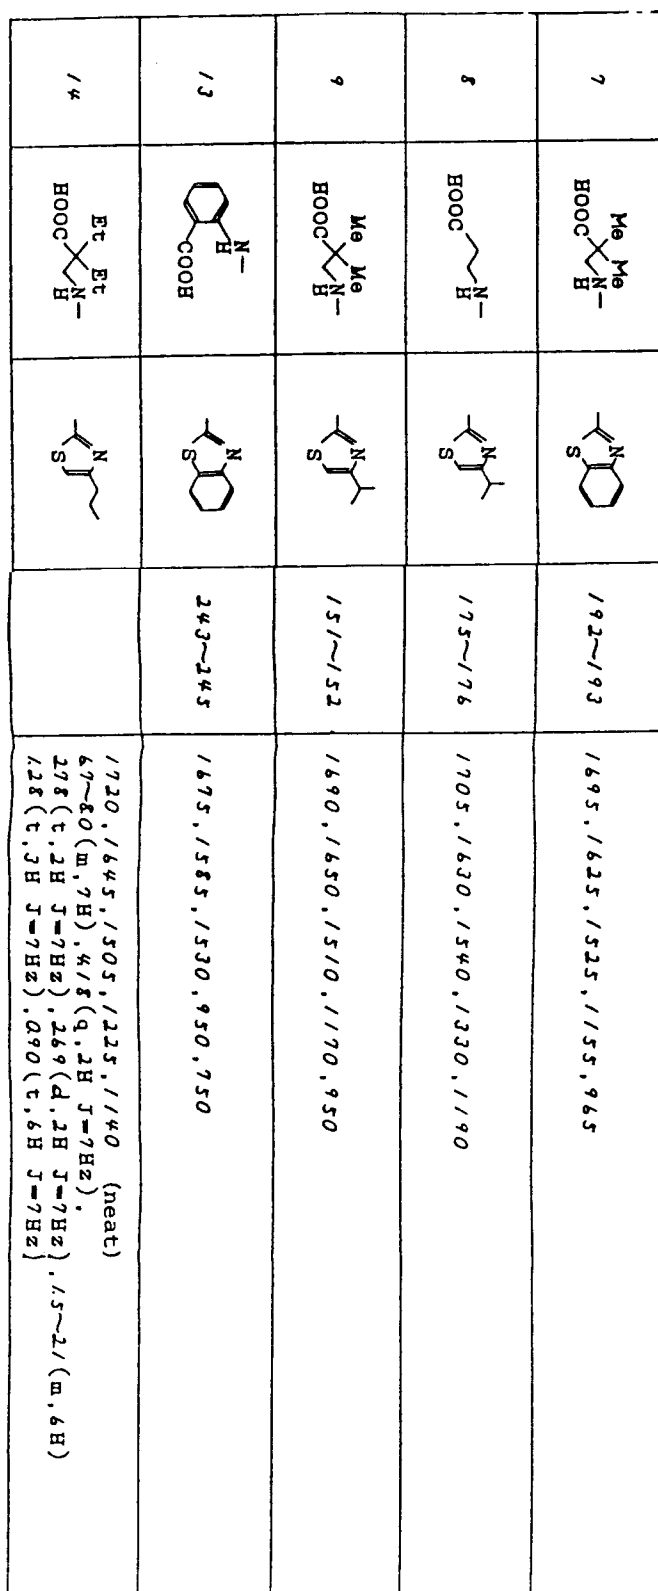 7
Me Me
HOOC N
H
N
S
192~193
1695,1625,1525,1155,965
8
HOOC N
H
N
S
175~176
1705,1630,1540,1330,1190
9
Me Me
HOOC N
H
N
S
151~152
1690,1650,1510,1170,950
13
N
H
COOH
N
S
243~245
1675,1585,1530,950,750
14
Et Et
HOOC N
H
N
S
1720,1645,1505,1225,1140 (neat)
6.7~8.0(m,7H),4.18(q,2H J=7Hz),
2.78(t,2H J=7Hz),2.69(d,2H J=7Hz),1.5~2.1(m,6H)
1.28(t,3H J=7Hz),0.90(t,6H J=7Hz)